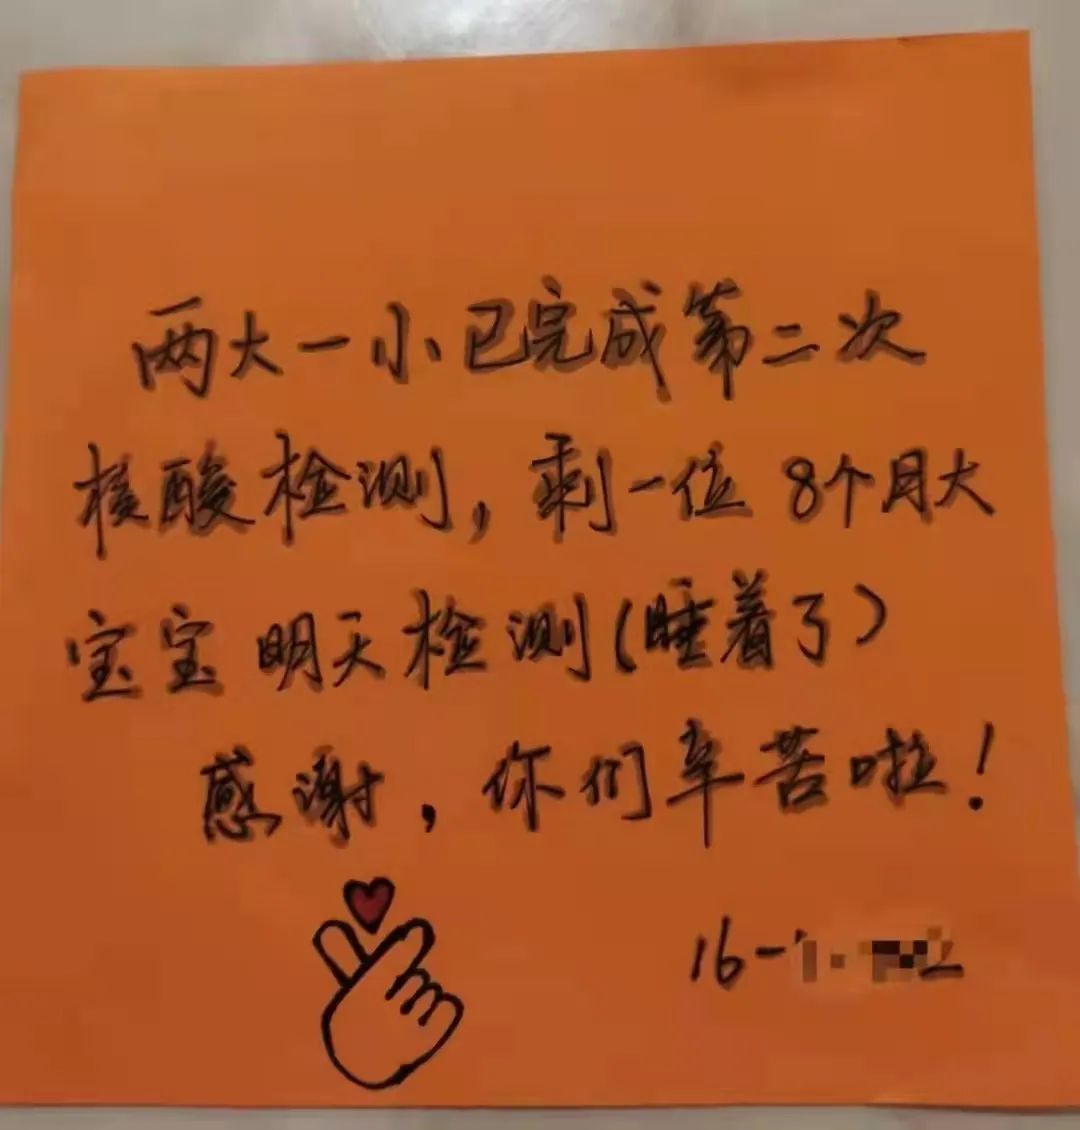 两大一小已完成第二次
核酸检测，剩一位 8个月大
宝宝 明天检测(睡着了)
感谢，你们辛苦啦！
16-